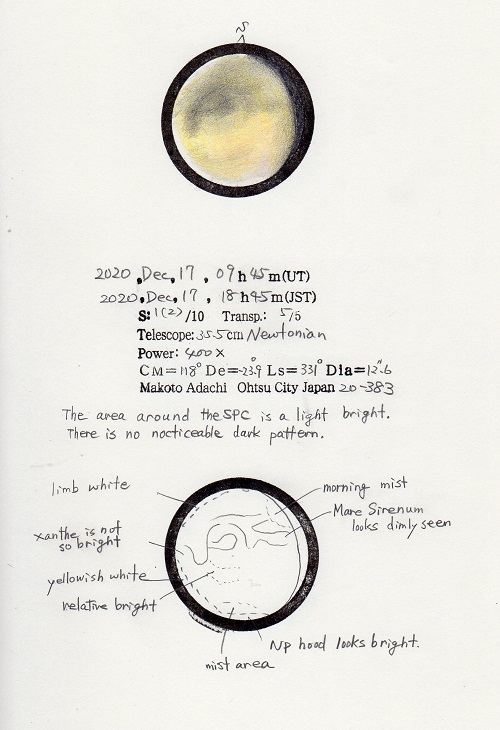 S
2020, Dec, 17, 09h45m(UT)
2020, Dec, 17, 18h45m(JST)
S: 1(2)/10 Transp.: 5/5
Telescope: 35.5cm Newtonian
Power: 400x
CM=118° De=-23.9° Ls=331° Dia=12".6
Makoto Adachi Ohtsu City Japan 20-383
The area around the SPC is a light bright.
There is no nocticeable dark pattern.
limb white
morning mist
Mare Sirenum
looks dimly seen
Xanthe is not
so bright
yellowish white
relative bright
Np hood looks bright.
mist area